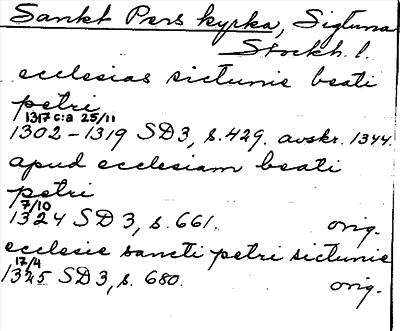 Sankt Pers kyrka, Sigtuna
Stockh. l.
ecclesias sictunie beati
petri
1317 c:a 25/11
1302-1319 SD3, s. 429. avskr. 1344.
apud ecclesiam beati
petri
7/10
1324 SD 3, s. 661. orig.
ecclesie sancti petri sictunie
17/4
1325 SD3, s. 680. orig.